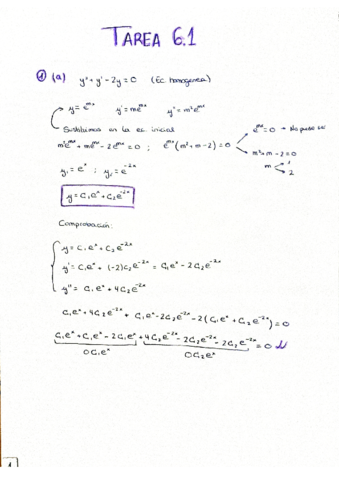 TAREA 6.1
① (a) y'' + y' - 2y = 0 (Ec homogenea)
y = e^{mx} y' = me^{mx} y'' = m²e^{mx}
Sustituimos en la ec inicial
e^{mx} = 0 → No puede ser
m²e^{mx} + me^{mx} - 2e^{mx} = 0 ; e^{mx}(m² + m - 2) = 0
m² + m - 2 = 0
m 1
2
y₁ = e^x ; y₂ = e^{-2x}
y = C₁e^x + C₂e^{-2x}
Comprobación:
y = C₁e^x + C₂e^{-2x}
y' = C₁e^x + (-2)C₂e^{-2x} = C₁e^x - 2C₂e^{-2x}
y'' = C₁e^x + 4C₂e^{-2x}
C₁e^x + 4C₂e^{-2x} + C₁e^x - 2C₂e^{-2x} - 2(C₁e^x + C₂e^{-2x}) = 0
C₁e^x + C₁e^x - 2C₁e^x + 4C₂e^{-2x} - 2C₂e^{-2x} - 2C₂e^{-2x} = 0
0C₁e^x 0C₂e^x
1